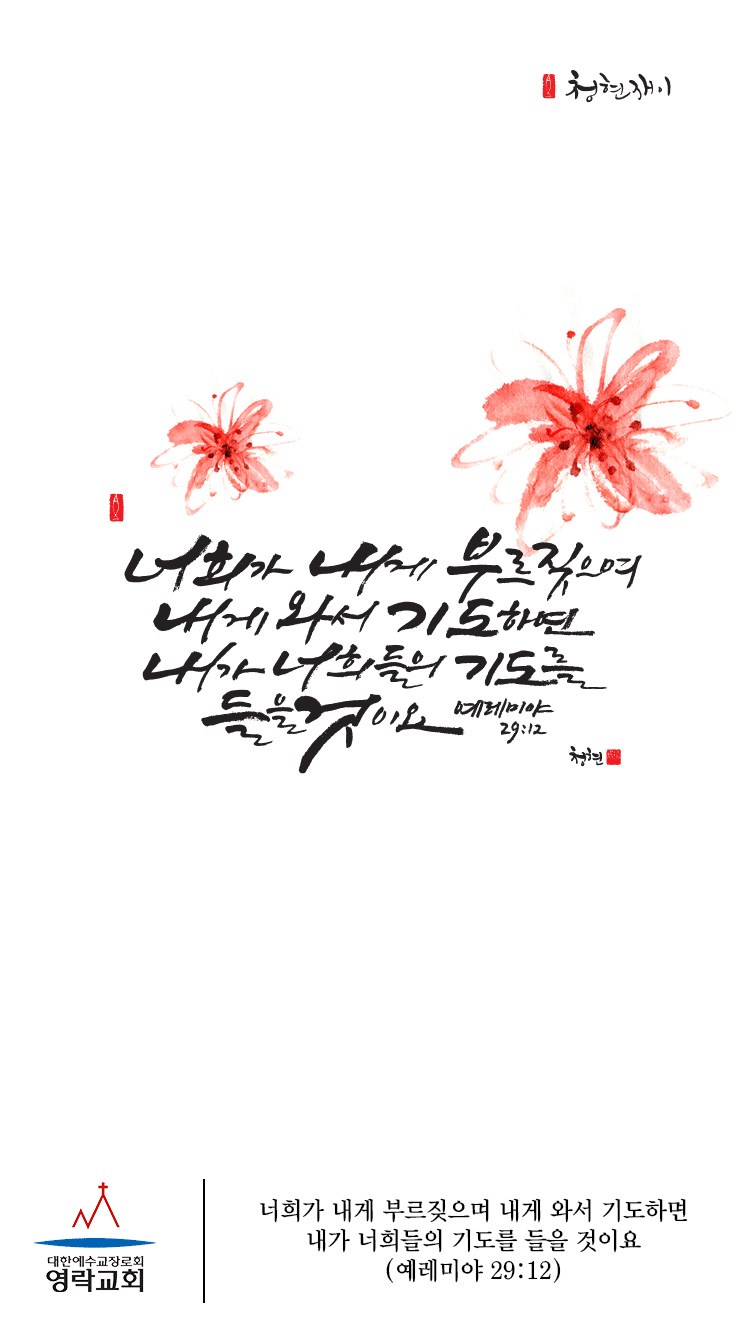 청현재이
너희가 내게 부르짖으며
내게 와서 기도하면
내가 너희들의 기도를
들을것이요 예레미야
29:12
청현
대한예수교장로회
영락교회
너희가 내게 부르짖으며 내게 와서 기도하면
내가 너희들의 기도를 들을 것이요
(예레미야 29:12)